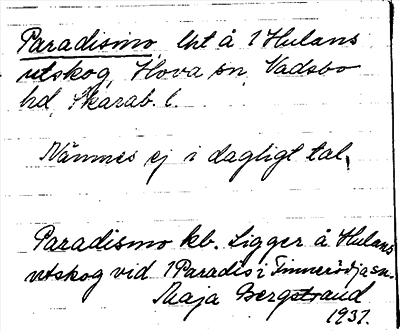 Paradismo lht å 1 Hulans
utskog, Hova sn, Vadsbo
hd, Skarab. l.
Nämnes ej i dagligt tal.
Paradismo kb. Ligger å Hulans
utskog vid 1 Paradis i Finnerödja sn.
Maja Bergstrand
1937.